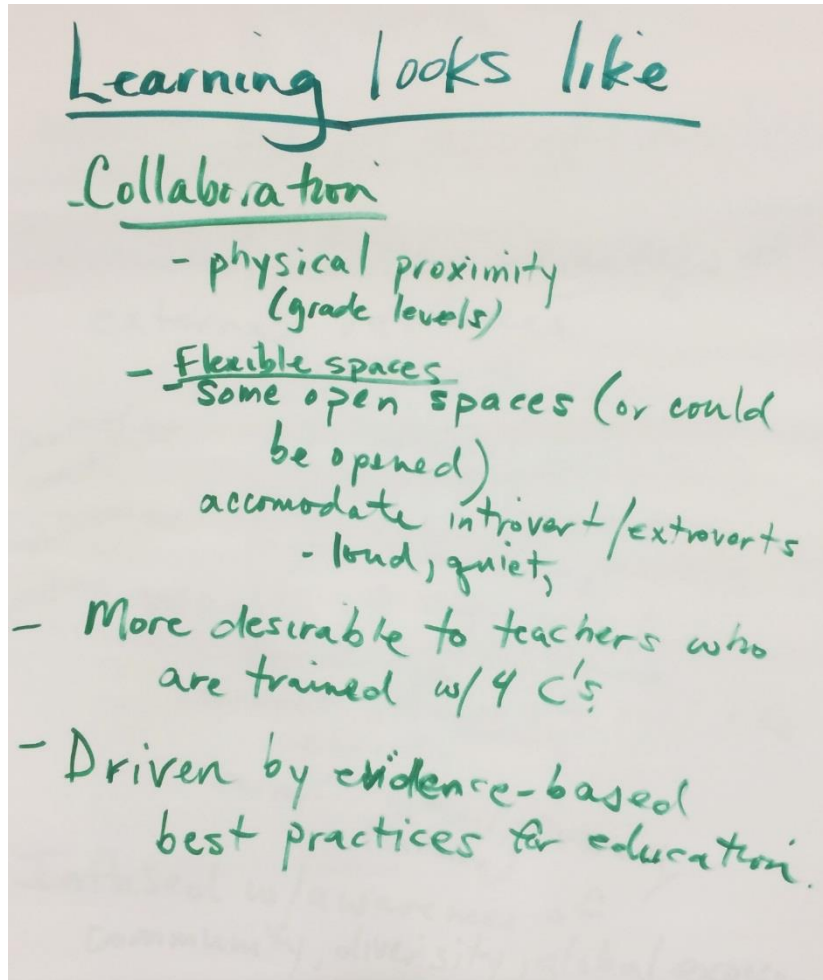 Learning looks like
- Collaboration
- physical proximity
(grade levels)
- Flexible spaces
- some open spaces (or could
be opened)
accomodate introvert/extroverts
- loud, quiet,
- More desirable to teachers who
are trained w/ 4 C's.
- Driven by evidence-based
best practices for education.